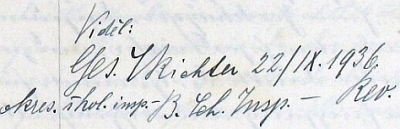 Viděl:
Ges. Richter 22./IX. 1936.
okres. škol. insp. - B. Sch. Insp. - Rev.